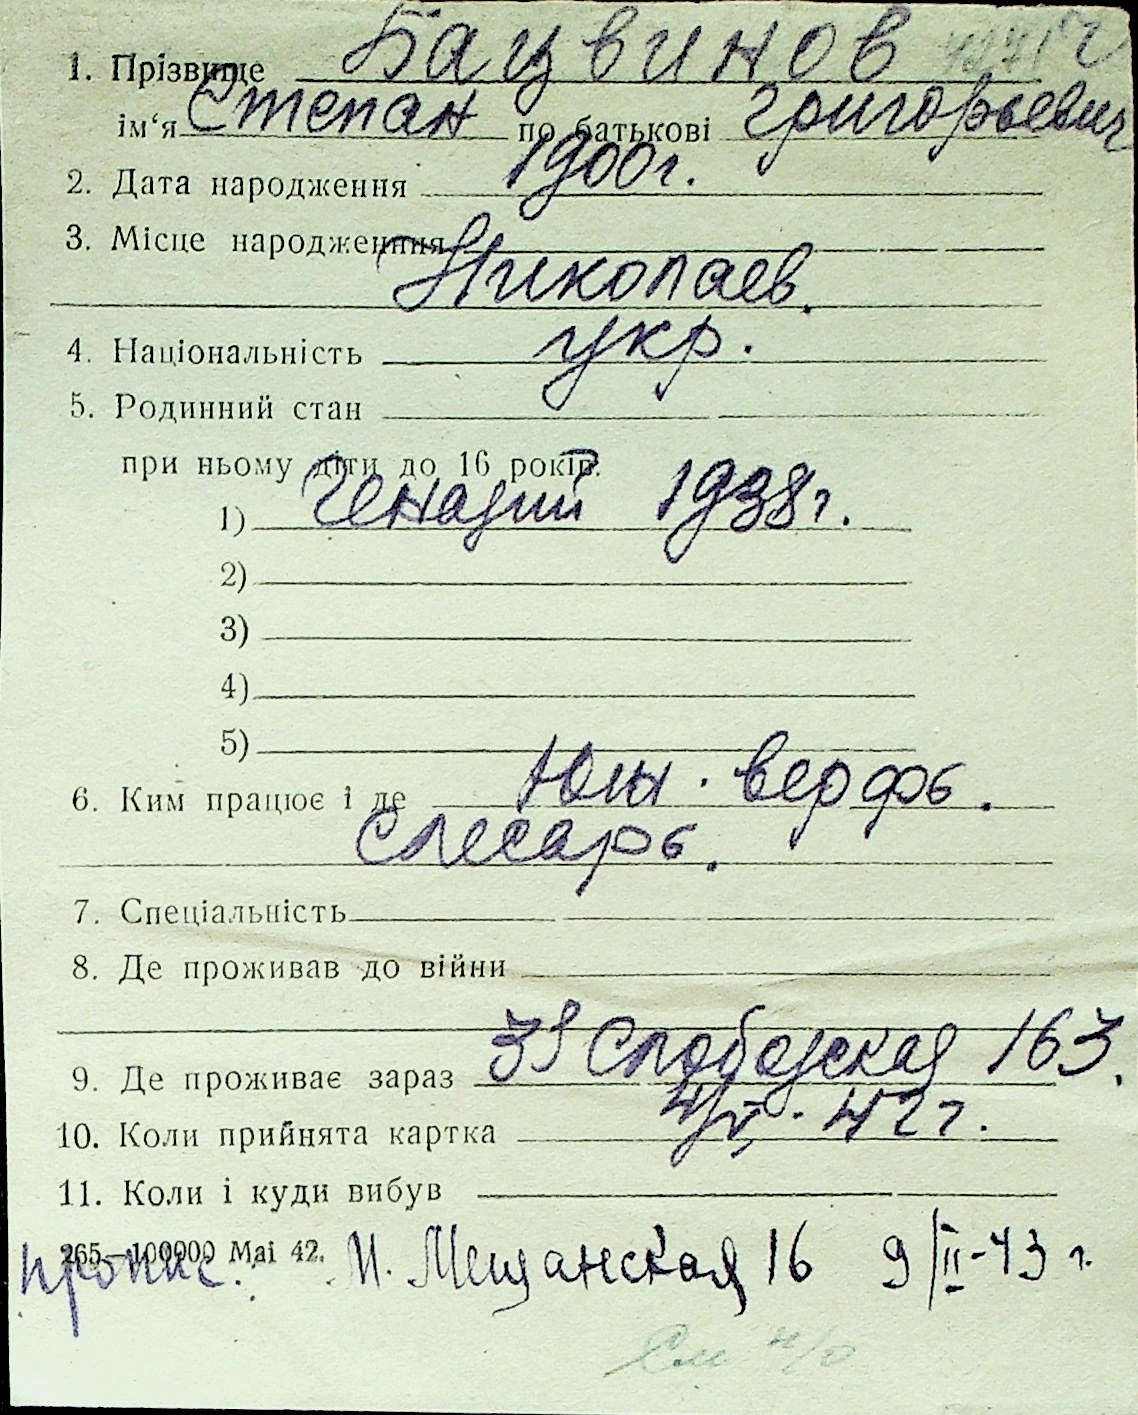 1. Прізвище Бацвинов
ім‘я Степан по батькові Григорьевич
2. Дата народження 1900г.
3. Місце народження
Николаев.
4. Національність укр.
5. Родинний стан
при ньому діти до 16 років.
1) Генадий 1938г.
2)
3)
4)
5)
6. Ким працює і де Юж. верфь.
Слесарь.
7. Спеціальність
8. Де проживав до війни
9. Де проживає зараз 3я Слободская 163.
10. Коли прийнята картка 42г.
11. Коли і куди вибув
265—100000 Маі 42.
пропис. М. Мещанская 16 9/II-43 г.
См н/о